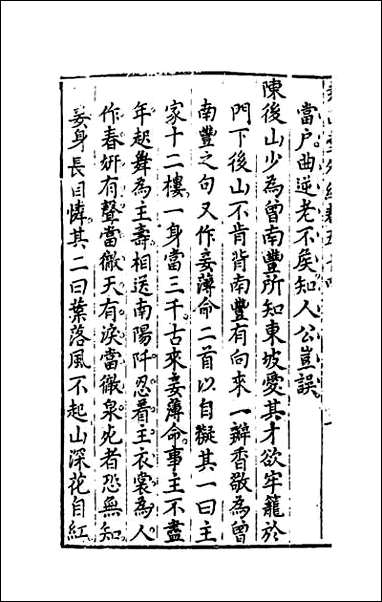 當户曲逆老不矦知人公豈誤
陳後山少為曾南豐所知東坡愛其才欲牢籠於
門下後山不肯背南豐有向來一瓣香敬為曾
南豐之句又作妾薄命二首以自擬其一曰主
家十二樓一身當三千古來妾薄命事主不盡
年起舞為主壽相送南陽阡忍着主衣裳為人
作春妍有聲當徹天有淚當徹泉死者恐無知
妾身長自憐其二曰葉落風不起山深花自紅